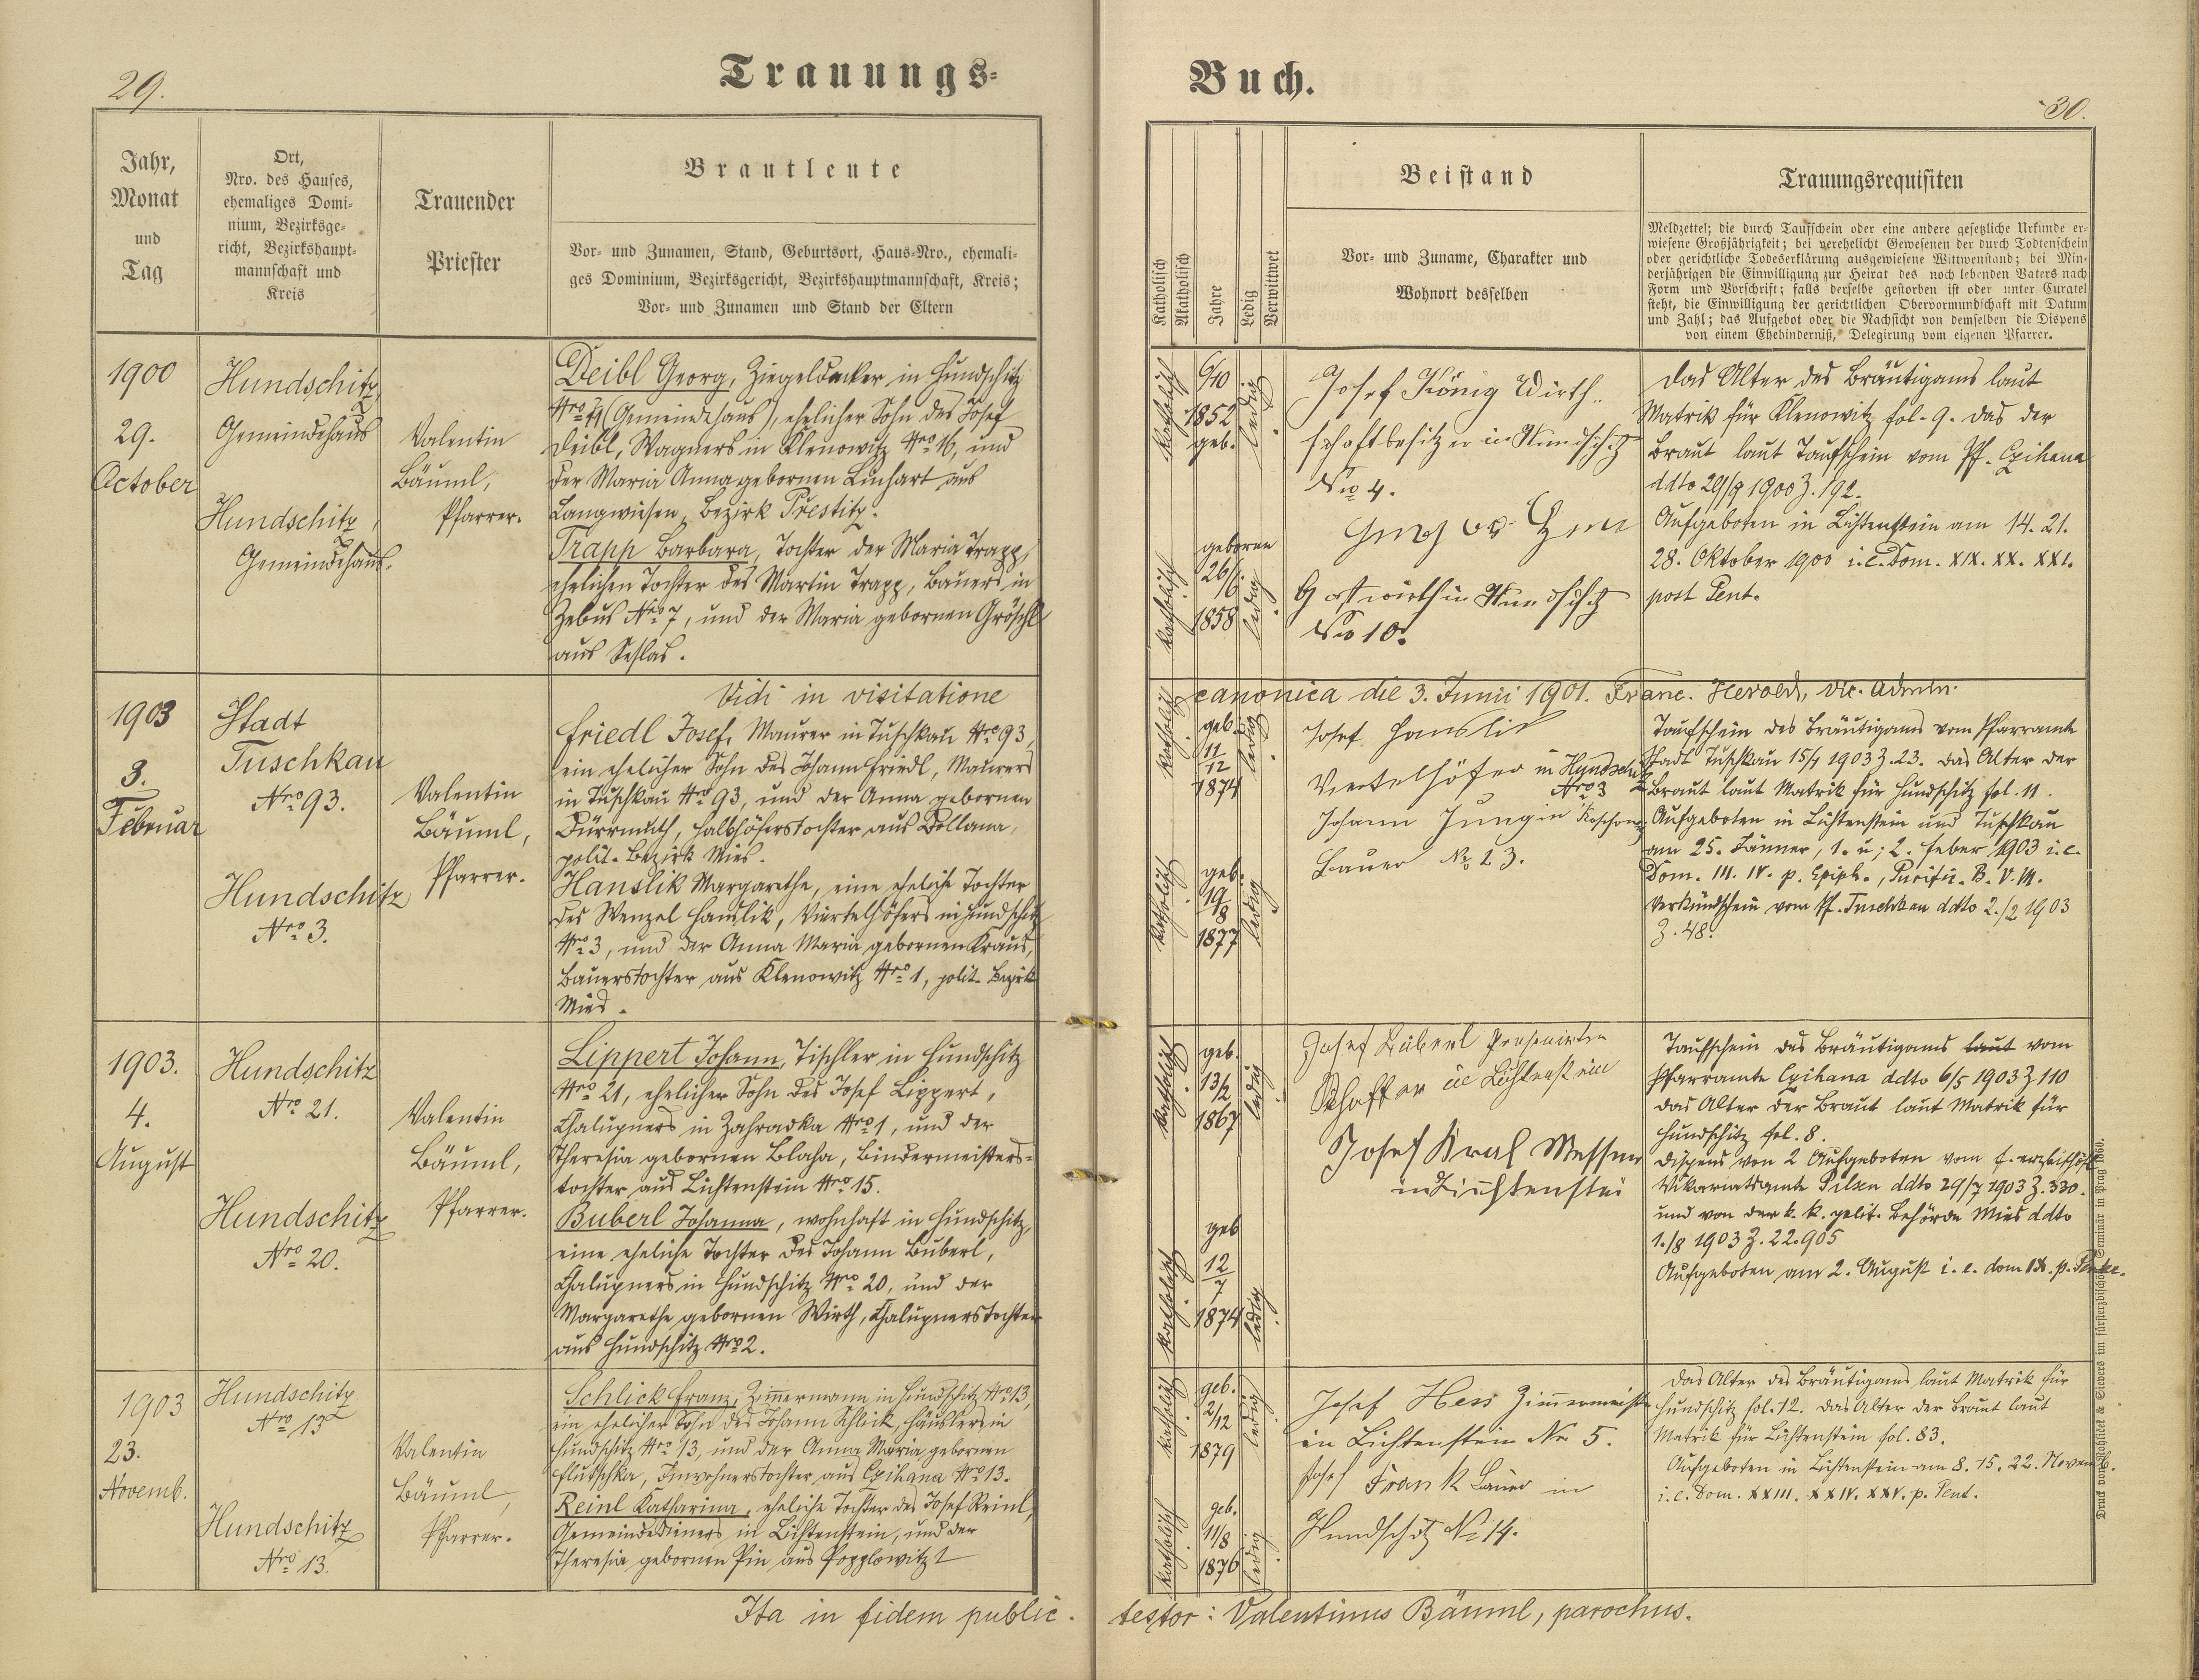 29.
Trauungs-
Jahr,
Monat
und
Tag
Ort,
Nro. des Hauses,
ehemaliges Domi-
nium, Bezirksge-
richt, Bezirkshaupt-
mannschaft und
Kreis
Trauender
Priester
Brautleute
Vor- und Zunamen, Stand, Geburtsort, Haus-Nro., ehemali-
ges Dominium, Bezirksgericht, Bezirkshauptmannschaft, Kreis;
Vor- und Zunamen und Stand der Eltern
1900
29.
October
Hundschitz,
Gemeindehaus
Hundschitz,
Gemeindehaus.
Valentin
Bäuml,
Pfarrer.
Deibl Georg, Ziegeldecker in Hundschitz
(Gemeindehaus), ehelicher Sohn des Josef
Deibl, Wagners in Klenowitz Nro 16, und
der Maria Anna gebornen Linhart aus
Langwiesen, Bezirk Prestitz.
Trapp Barbara, Tochter der Maria Trapp,
ehelichen Tochter des Martin Trapp, Bauers in
Zebus Nro 7, und der Maria gebornen Gröschl
aus
Vidi in visitatione
1903
3.
Februar
Stadt
Tuschkau
Nro 93.
Hundschitz
Nro 3.
Valentin
Bäuml,
Pfarrer.
Friedl Josef, Maurer in Tuschkau Nro 93,
ein ehelicher Sohn des Johann Friedl, Maurers
in Tuschkau Nro 93, und der Anna gebornen
Dürrmuth, Halbhöferstochter aus Dollana,
polit. Bezirk Mies.
Hanslik Margarethe, eine eheliche Tochter
des Wenzel Hanslik, Viertelhöfers in Hundschitz
Nro 3, und der Anna Maria gebornen Kraus,
Bauerstochter aus Klenowitz Nro 1, polit. Bezirk
Mies.
1903.
4.
August
Hundschitz
Nro 21.
Hundschitz
Nro 20.
Valentin
Bäuml,
Pfarrer.
Lippert Johann, Tischler in Hundschitz
Nro 21, ehelicher Sohn des Josef Lippert,
Chalupners in Zahradka Nro 1, und der
Theresia gebornen Blaha, Bindermeisters-
tochter aus Lichtenstein Nro 15.
Buberl Johanna, wohnhaft in Hundschitz,
eine eheliche Tochter des Johann Buberl,
Chalupners in Hundschitz Nro 20, und der
Margarethe gebornen Wirth, Chalupnerstochter
aus Hundschitz Nro 2.
1903
23.
Novemb.
Hundschitz
Nro 13
Hundschitz
Nro 13.
Valentin
Bäuml,
Pfarrer.
Schlick Franz, Zimmermann in Hundschitz Nro 13,
ein ehelicher Sohn des Johann Schlick, Häuslers in
Hundschitz Nro 13, und der Anna Maria gebornen
Flutschka, Inwohnerstochter aus Czihana Nro 13.
Reinl Katharina, eheliche Tochter des Josef Reinl,
Gemeindedieners in Lichtenstein, und der
Theresia gebornen Pin aus Popplowitz
Ita in fidem public.
Buch.
30.
Katholisch
Akatholisch
Jahre
Ledig
Verwittwet
Beistand
Vor- und Zuname, Charakter und
Wohnort desselben
Trauungsrequisiten
Meldzettel; die durch Taufschein oder eine andere gesetzliche Urkunde er-
wiesene Großjährigkeit; bei verehelicht Gewesenen der durch Todtenschein
oder gerichtliche Todeserklärung ausgewiesene Wittwenstand; bei Min-
derjährigen die Einwilligung zur Heirat des noch lebenden Vaters nach
Form und Vorschrift; falls derselbe gestorben ist oder unter Curatel
steht, die Einwilligung der gerichtlichen Obervormundschaft mit Datum
und Zahl; das Aufgebot oder die Nachsicht von demselben die Dispens
von einem Ehehinderniß, Delegirung vom eigenen Pfarrer.
katholisch
6/10
1852
geb.
ledig
katholisch
geboren
26/6.
1858
ledig
Josef König Wirth-
schaftbesitzer in Hundschitz
Nro 4.
Gastwirth in Hundschitz
Nro 10.
Das Alter des Bräutigams laut
Matrik für Klenowitz fol. 9. Das der
Braut laut Taufschein vom Pf. Czihana
ddto 29/9 1900 Z. 192.
Aufgeboten in Lichtenstein am 14. 21.
28. Oktober 1900 i. e. Dom. XIX. XX. XXI.
post Pent.
canonica die 3. Junii 1901. Franc. Herold, vic. Admin.
katholisch
geb.
11
12
1874
ledig
katholisch
geb.
19
8
1877
ledig
Josef Hanslik
Viertelhöfer in Hundschitz
Nro 3
Johann Jung in
Bauer No 13.
Taufschein des Bräutigams vom Pfarramte
Stadt Tuschkau 15/1 1903 Z. 23. Das Alter der
Braut laut Matrik für Hundschitz fol. 11.
Aufgeboten in Lichtenstein und Tuschkau
am 25. Jänner, 1. u. 2. Feber 1903 i. e.
Dom. III. IV. p. Epiph., Purific. B. V. M.
Verkündschein vom Pf. Tuschkau ddto 2./2 1903
Z. 48.
katholisch
geb.
13/2
1867
ledig
katholisch
geb
12
7
1874
ledig
Josef Buberl Pensionirter
Schaffer in Lichtenstein
Josef Kral Messner
in Lichtenstei
Taufschein des Bräutigams laut vom
Pfarramte Czihana ddto 6/5 1903 Z 110
Das Alter der Braut laut Matrik für
Hundschitz fol. 8.
Dispens von 2 Aufgeboten vom f. erzbischöfl.
Vikariatsamte Pilsen ddto 29/7 1903 Z. 330.
und von der k. k. polit. Behörde Mies ddto
1./8 1903 Z. 22.905
Aufgeboten am 2. August i. e. dom IX. p. Pente.
katholisch
geb.
2/12
1879
ledig
katholisch
geb.
11/8
1876
ledig
Josef Hess Zimmermeister
in Lichtenstein Nr 5.
Josef Frank Bauer in
Hundschitz No 14.
Das Alter des Bräutigams laut Matrik für
Hundschitz fol. 12. Das Alter der Braut laut
Matrik für Lichtenstein fol. 83.
Aufgeboten in Lichtenstein am 8. 15. 22. Novemb.
i. e. Dom. XXIII. XXIV. XXV. p. Pent.
testor: Valentinus Bäuml, parochus.
Druck von Rohliček & Sievers im fürsterzbischöfl. Seminär in Prag 1860.